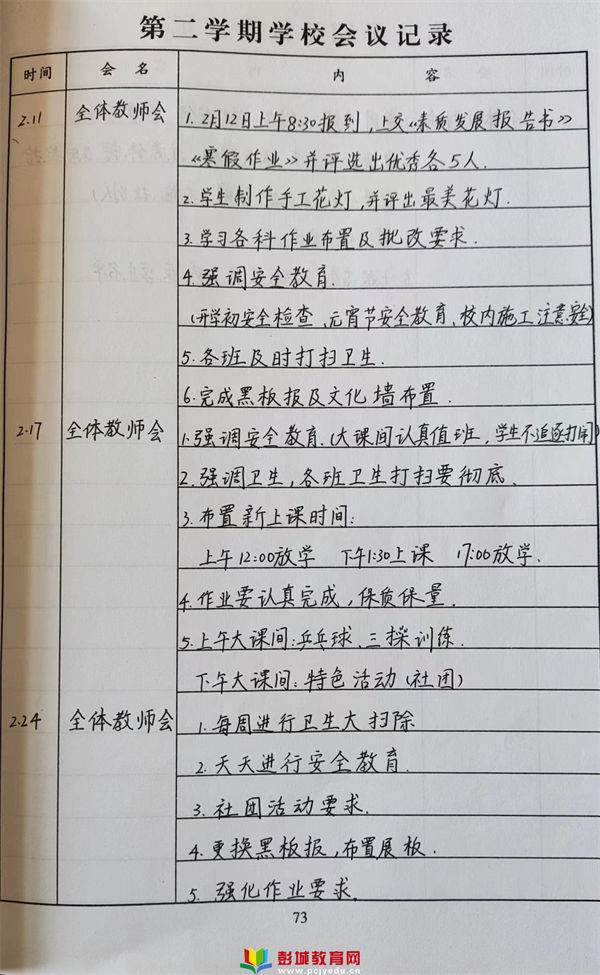 第二学期学校会议记录
时间 会名 内容
2.11 全体教师会 1. 2月12日上午8:30报到,上交《素质发展报告书》
《寒假作业》并评选出优秀各5人.
2.学生制作手工花灯,并评出最美花灯.
3.学习各科作业布置及批改要求.
4.强调安全教育.
(开学初安全检查、元宵节安全教育、校内施工注意安全)
5.各班及时打扫卫生.
6.完成黑板报及文化墙布置.
2.17 全体教师会 1.强调安全教育.(大课间认真值班,学生不追逐打闹)
2.强调卫生,各班卫生打扫要彻底.
3.布置新上课时间:
上午12:00放学 下午1:30上课 17:00放学.
4.作业要认真完成,保质保量.
5.上午大课间:乒乓球、三操训练.
下午大课间:特色活动(社团)
2.24 全体教师会 1.每周进行卫生大扫除
2.天天进行安全教育.
3.社团活动要求.
4.更换黑板报,布置展板.
5.强化作业要求.
73
彭城教育网
www.pcjyedu.cn